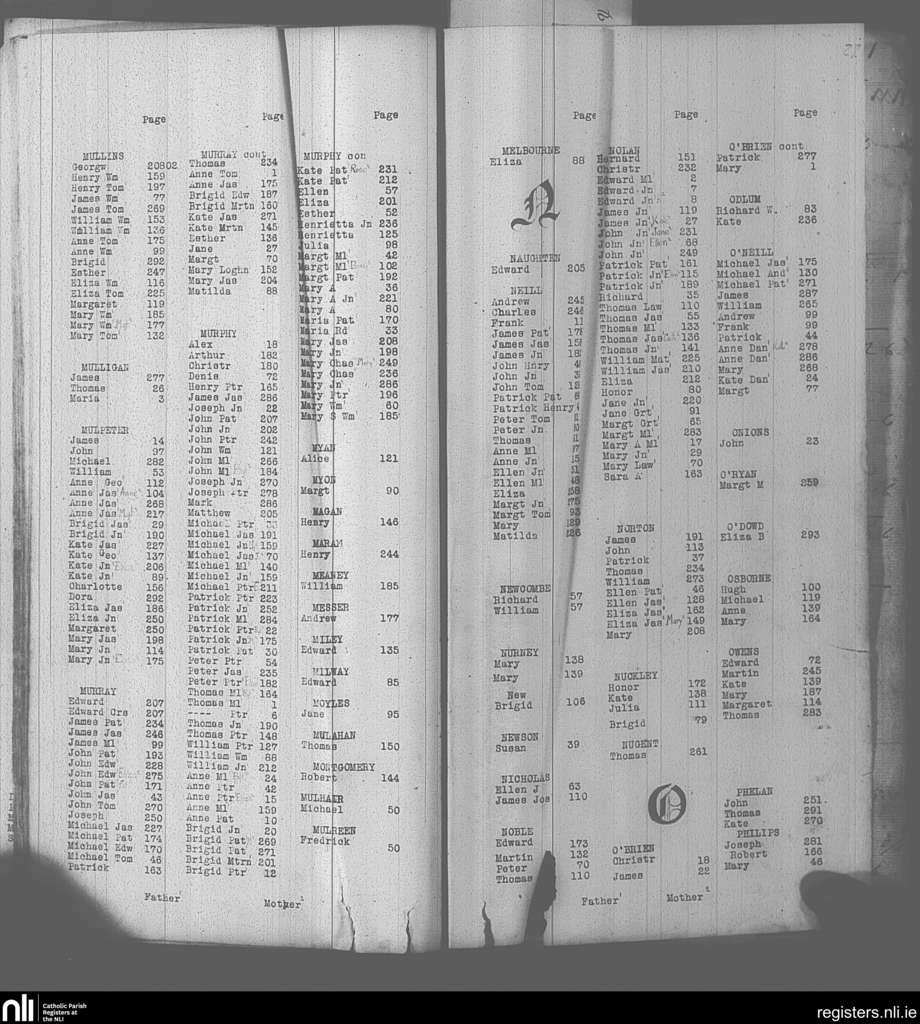 Page
MULLINS
Georgw 20802
Henry Wm 159
Henry Tom 197
James Wm 77
James Tom 269
William Wm 153
William Wm 136
Anne Tom 175
Anne Wm 99
Brigid 292
Esther 247
Eliza Wm 116
Eliza Tom 225
Margaret 119
Mary Wm 185
Mary Wm 177
Mary Tom 132
MULLIGAN
James 277
Thomas 26
Maria 3
MULPETER
James 14
John 97
Michael 282
William 53
Anne Geo 112
Anne Jas 104
Anne Jas 268
Anne Jas 217
Brigid Jas 29
Brigid Jn 190
Kate Jas 227
Kate Geo 137
Kate Jn 206
Kate Jn 89
Charlotte 156
Dora 292
Eliza Jas 186
Eliza Jn 250
Margaret 250
Mary Jas 198
Mary Jn 114
Mary Jn 175
MURRAY
Edward 207
Edward Crs 207
James Pat 234
James Jas 246
James Ml 99
John Pat 193
John Edw 228
John Edw 275
John Pat 171
John Jas 43
John Tom 270
Joseph 250
Michael Jas 227
Michael Pat 174
Michael Edw 170
Michael Tom 46
Patrick 163
Father
Page
MURRAY cont
Thomas 234
Anne Tom 1
Anne Jas 175
Brigid Edw 187
Brigid Mrtn 160
Kate Jas 271
Kate Mrtn 145
Esther 136
Jane 27
Margt 70
Mary Loghn 152
Mary Jas 204
Matilda 88
MURPHY
Alex 18
Arthur 182
Christr 180
Denis 72
Henry Ptr 165
James Jas 286
Joseph Jn 22
John Pat 207
John Jn 202
John Ptr 242
John Wm 121
John Ml 266
John Ml 184
Joseph Jn 270
Joseph Ptr 278
Mark 286
Matthew 205
Michael Ptr
Michael Jas 191
Michael Jn 159
Michael Jas 70
Michael Ml 140
Michael Jn 159
Michael Ptr 211
Patrick Ptr 223
Patrick Jn 252
Patrick Ml 284
Patrick Ptr 22
Patrick Jn 175
Patrick Pat 30
Peter Ptr 54
Peter Jas 235
Peter Ptr 182
Thomas Ml 164
Thomas Ml 1
---- Ptr 6
Thomas Jn 190
Thomas Ptr 148
William Ptr 127
William Wm 88
William Jn 212
Anne Ml 24
Anne Ptr 42
Anne Ptr 15
Anne Ml 159
Anne Pat 10
Brigid Jn 20
Brigid Pat 269
Brigid Pat 271
Brigid Mtrn 201
Brigid Ptr 12
Mother
Page
MURPHY con
Kate Pat Rose 231
Kate Pat 212
Ellen 57
Eliza 201
Esther 52
Henrietta Jn 236
Henrietta 125
Julia 98
Margt Ml 42
Margt Ml 102
Margt Pat 192
Mary A 36
Mary A Jn 221
Mary A 80
Maria Pat 170
Maria Rd 33
Mary Jas 208
Mary Jn 198
Mary Chas 249
Mary Chas 236
Mary Jn 286
Mary Ptr 196
Mary Wm 60
Mary S Wm 185
MYAN
Alice 121
MYON
Margt 90
MAGAN
Henry 146
MARAM
Henry 244
MEANEY
William 185
MESSER
Andrew 177
MILEY
Edward 135
MILWAY
Edward 85
MOYLES
Jane 95
MULAHAN
Thomas 150
MONTGOMERY
Robert 144
MULHAIR
Michael 50
MULREEN
Fredrick 50
Page
MELBOURNE
Eliza 88
N
NAUGHTEN
Edward 205
NEILL
Andrew
Charles
Frank
James Pat
James Jas
James Jn
John Hnry
John Jn
John Tom
Patrick Pat
Patrick Henry
Peter Tom
Peter Jn
Thomas
Anne Ml
Anne Jn
Ellen Jn
Ellen Ml
Eliza
Margt Jn
Margt Tom
Mary
Matilda
NEWCOMBE
Richard 57
William 57
NURNEY
Mary 138
Mary 139
New
Brigid 106
NEWSON
Susan 39
NICHOLAS
Ellen J 63
James Jos 110
NOBLE
Edward 173
Martin 132
Peter 70
Thomas 110
Father
Page
NOLAN
Bernard 151
Christr 232
Edward Ml 2
Edward Jn 7
Edward Jn 8
James Jn 119
James Jn 27
John Jn Jane 231
John Jn Ellen 68
John Jn 249
Patrick Pat 161
Patrick Jn 115
Patrick Jn 189
Richard 35
Thomas Law 110
Thomas Jas 55
Thomas Ml 133
Thomas Jas 136
Thomas Jn 141
William Mat 225
William Jas 210
Eliza 212
Honor 80
Jane Jn 220
Jane Grt 91
Margt Grt 65
Margt Ml 283
Mary A Ml 17
Mary Jn 29
Mary Law 70
Sara A 163
NORTON
James 191
John 113
Patrick 37
Thomas 234
William 273
Ellen Pat 46
Ellen Jas 128
Eliza Jas 162
Eliza Jas Mary 149
Mary 208
NUCKLEY
Honor 172
Kate 138
Julia 111
Brigid 79
NUGENT
Thomas 261
O
O'BRIEN
Christr 18
James 22
Mother
Page
O'BRIEN cont
Patrick 277
Mary 1
ODLUM
Richard W. 83
Kate 236
O'NEILL
Michael Jas 175
Michael And 130
Michael Pat 271
James 287
William 265
Andrew 99
Frank 99
Patrick 44
Anne Dan 278
Anne Dan 286
Mary 268
Kate Dan 24
Margt 77
ONIONS
John 23
O'RYAN
Margt M 259
O'DOWD
Eliza B 293
OSBORNE
Hugh 100
Michael 119
Anne 139
Mary 164
OWENS
Edward 72
Martin 245
Kate 139
Mary 187
Margaret 114
Thomas 283
PHELAN
John 251
Thomas 291
Kate 270
PHILIPS
Joseph 281
Robert 166
Mary 46
nli
Catholic Parish
Registers at
the NLI
registers.nli.ie